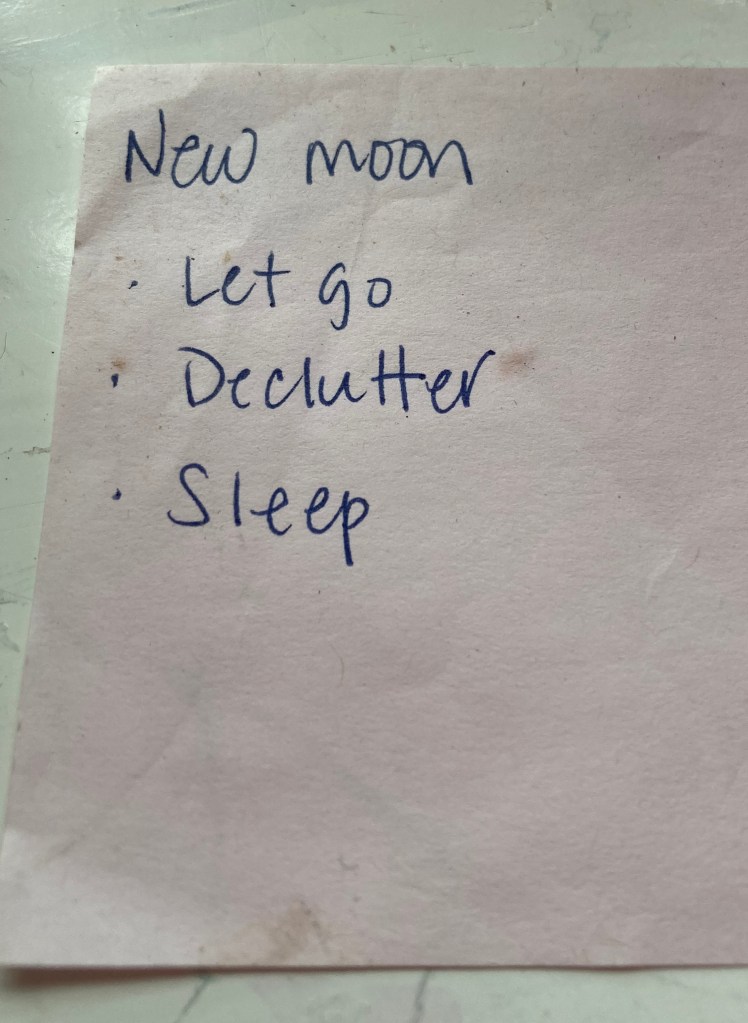 New moon
· Let go
· Declutter
· Sleep